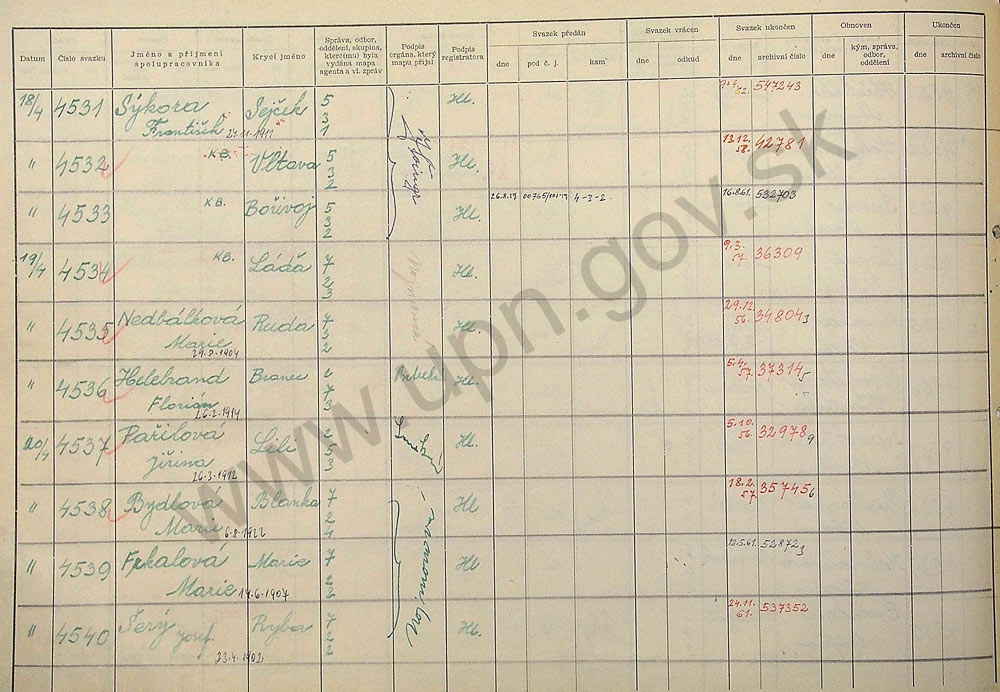 Datum Číslo svazku Jméno a příjmení spolupracovníka Krycí jméno Správa, odbor, oddělení, skupina, kterému byla vydána mapa agenta a vl. zpráv Podpis orgána, který mapu přijal Podpis registratora Svazek předán Svazek vrácen Svazek ukončen Obnoven Ukončen
dne pod č. j. kam dne odkud dne archivní číslo dne kým, správa, odbor, oddělení dne archivní číslo
18/4 4531 Sýkora Sejček 5 Hl. 547243
František 27.11.1911 3
1
" 4532 KB. Vltava 5 Hl. 13.12. 58. 42781
3
2
" 4533 KB. Bořivoj 5 Hl. 4-3-2. 16.8.61. 532703
3
2
19/4 4534 KB. Láďa 7 Hl. 9.3. 57. 36309
2
3
" 4535 Nedbálková Ruda 7 Hl. 29.12. 56. 34804 3
Marie 3
2
" 4536 Helebrand Branec 2 Hl. 5.4. 57. 37314 5
Florián 26.2.1914 7
3
20/4 4537 Pařilová Lili 2 Hl. 5.10. 56. 32978 9
Jiřina 26.3.1912 5
3
" 4538 Bydlová Blanka 7 Hl 18.2. 57. 35745 6
Marie 6.8.1922 2
4
" 4539 Frkalová Marie 7 Hl 12.5.61. 52872 3
Marie 14.6.1907 2
" 4540 Šerý Ryba 7 Hl. 24.11. 61. 537352
Josef 2
23.4.1902 2
www.upn.gov.sk